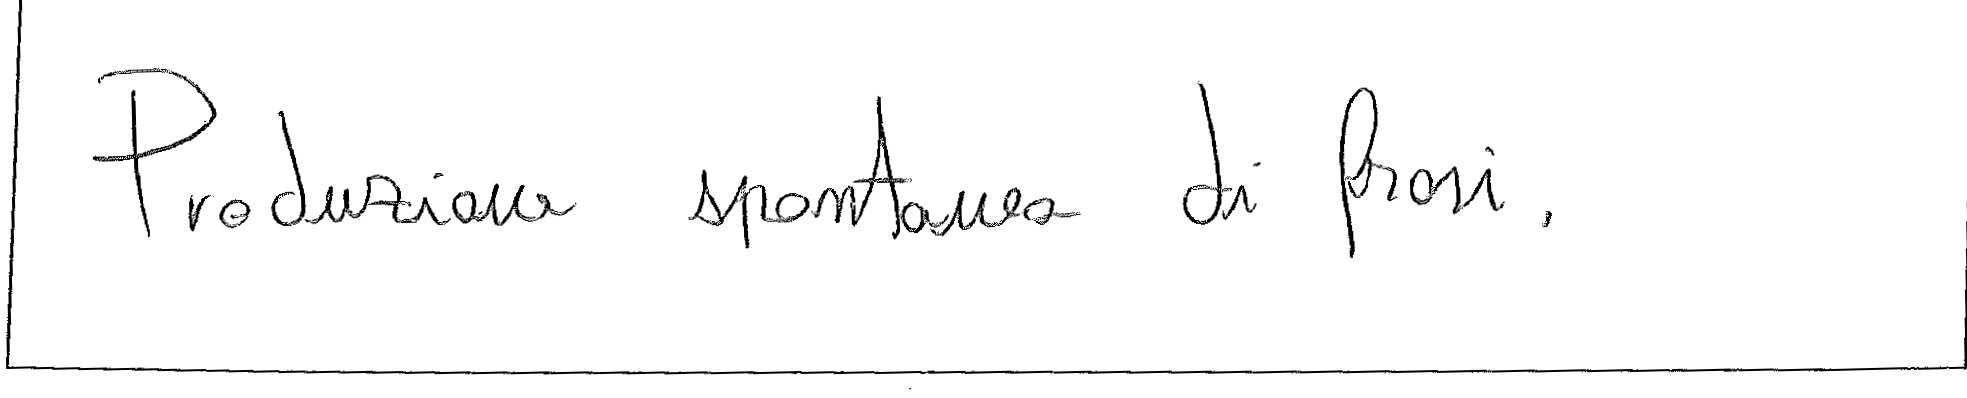 Produzione spontanea di frasi,